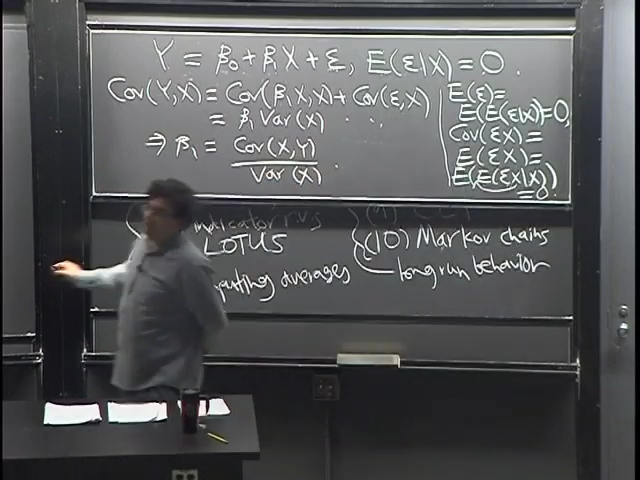 Y = β₀ + β₁X + ε, E(ε|X) = 0.
Cov(Y,X) = Cov(β₁X,X) + Cov(ε,X)
= β₁ Var(X)
⇒ β₁ = Cov(X,Y) / Var(X).
E(ε) =
E(E(ε|X)) = 0,
Cov(ε,X) =
E(εX) =
E(E(εX|X))
= 0.
indicator r.v.s
LOTUS
averages
(10) Markov chains
long run behavior